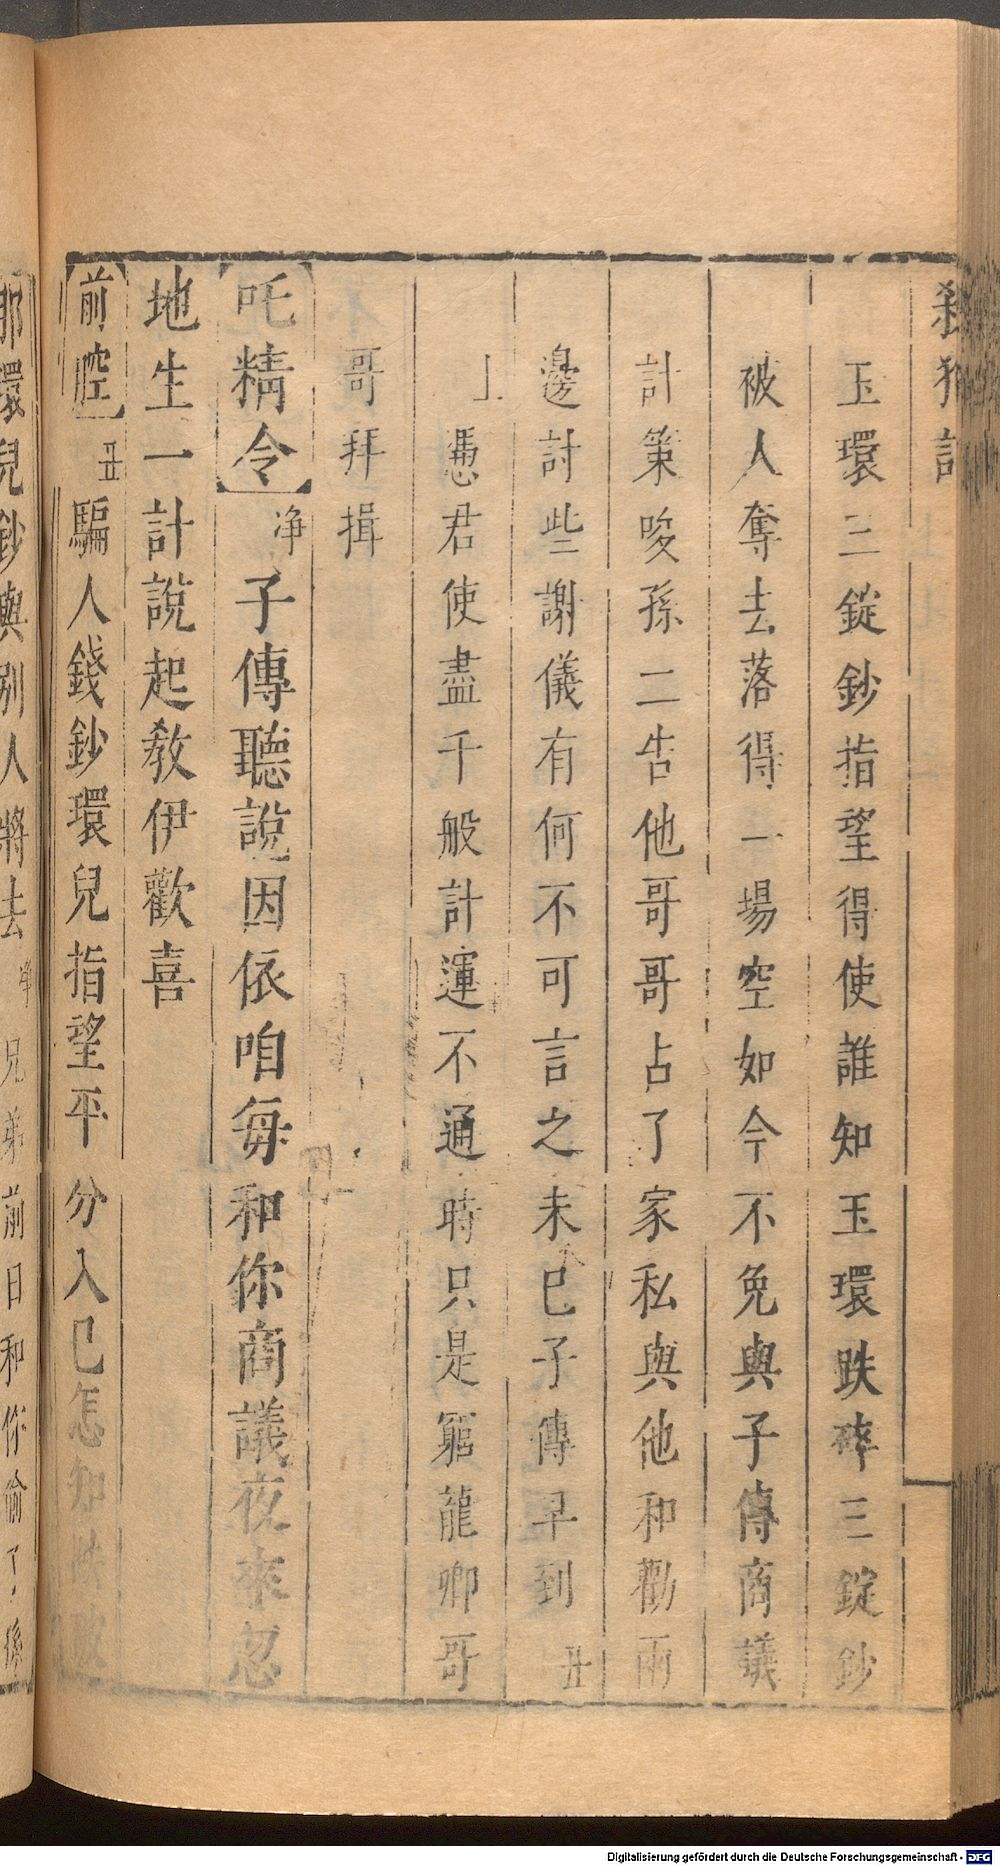 殺狗記
玉環三錠鈔指望得使誰知玉環跌碎三錠鈔
被人奪去落得一場空如今不免與子傳商議
計策唆孫二告他哥哥占了家私與他和勸兩
邊討些謝儀有何不可言之未已子傳早到丑
上憑君使盡千般計運不通時只是窮龍卿哥
哥拜揖
【吒精令】净子傳聽說因依咱每和你商議夜來忽
地生一計說起教伊歡喜
【前腔】丑騙人錢鈔環兒指望平分入己怎知跌破
那環兒鈔與別人將去净兄弟前日和你偷了孫
Digitalisierung gefördert durch die Deutsche Forschungsgemeinschaft - DFG